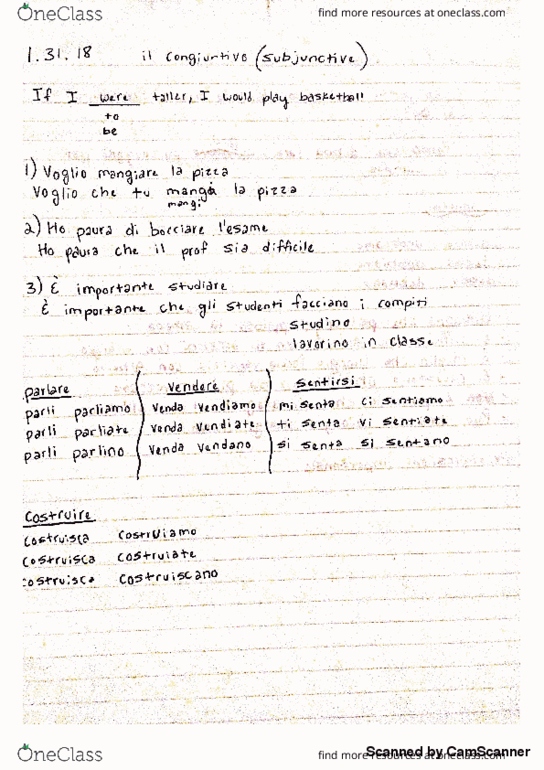 OneClass
find more resources at oneclass.com
1.31.18 il congiuntivo (subjunctive)
If I were taller, I would play basketball
to
be
1) Voglio mangiare la pizza
Voglio che tu mangi la pizza
mangi
2) Ho paura di bocciare l'esame
Ho paura che il prof sia difficile
3) È importante studiare
È importante che gli studenti facciano i compiti
studino
lavorino in classe
parlare vendere sentirsi
parli parliamo venda vendiamo mi senta ci sentiamo
parli parliate venda vendiate ti senta vi sentiate
parli parlino venda vendano si senta si sentano
costruire
costruisca costruiamo
costruisca costruiate
costruisca costruiscano
OneClass
find more resources at oneclass.com
Scanned by CamScanner